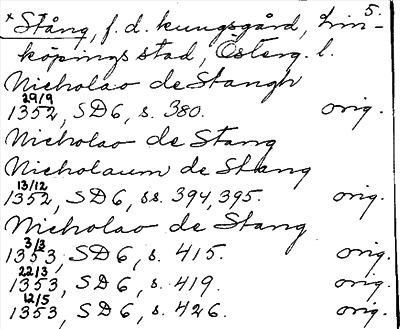 5.
×Stång, f. d. kungsgård, Lin-
köpings stad, Österg. l.
Nicholao de Stangh
29/9
1352, SD 6, s. 380. orig.
Nicholao de Stang
Nicholaum de Stang
13/12
1352, SD 6, ss. 394, 395. orig.
Nicholao de Stang
3/3
1353, SD 6, s. 415. orig.
22/3
1353, SD 6, s. 419. orig.
12/5
1353, SD 6, s. 426. orig.